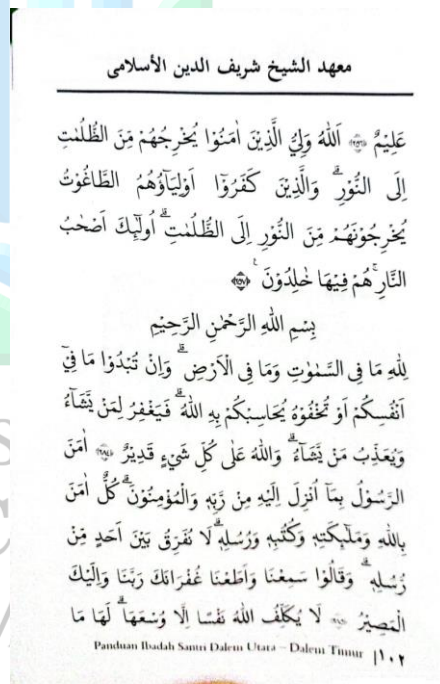 معهد الشيخ شريف الدين الأسلامى
عَلِيْمٌ ﴿٢٥٦﴾ اَللّٰهُ وَلِيُّ الَّذِيْنَ اٰمَنُوْا يُخْرِجُهُمْ مِّنَ الظُّلُمٰتِ
اِلَى النُّوْرِۗ وَالَّذِيْنَ كَفَرُوْٓا اَوْلِيَاۤؤُهُمُ الطَّاغُوْتُ
يُخْرِجُوْنَهُمْ مِّنَ النُّوْرِ اِلَى الظُّلُمٰتِۗ اُولٰۤىِٕكَ اَصْحٰبُ
النَّارِۚ هُمْ فِيْهَا خٰلِدُوْنَ ࣖ ﴿٢٥٧﴾
بِسْمِ اللّٰهِ الرَّحْمٰنِ الرَّحِيْمِ
لِلّٰهِ مَا فِى السَّمٰوٰتِ وَمَا فِى الْاَرْضِۗ وَاِنْ تُبْدُوْا مَا فِيْٓ
اَنْفُسِكُمْ اَوْ تُخْفُوْهُ يُحَاسِبْكُمْ بِهِ اللّٰهُۗ فَيَغْفِرُ لِمَنْ يَّشَاۤءُ
وَيُعَذِّبُ مَنْ يَّشَاۤءُۗ وَاللّٰهُ عَلٰى كُلِّ شَيْءٍ قَدِيْرٌ ﴿٢٨٤﴾ اٰمَنَ
الرَّسُوْلُ بِمَآ اُنْزِلَ اِلَيْهِ مِنْ رَّبِّهٖ وَالْمُؤْمِنُوْنَۗ كُلٌّ اٰمَنَ
بِاللّٰهِ وَمَلٰۤىِٕكَتِهٖ وَكُتُبِهٖ وَرُسُلِهٖۗ لَا نُفَرِّقُ بَيْنَ اَحَدٍ مِّنْ
رُّسُلِهٖۗ وَقَالُوْا سَمِعْنَا وَاَطَعْنَا غُفْرَانَكَ رَبَّنَا وَاِلَيْكَ
الْمَصِيْرُ ﴿٢٨٥﴾ لَا يُكَلِّفُ اللّٰهُ نَفْسًا اِلَّا وُسْعَهَاۗ لَهَا مَا
Panduan Ibadah Santri Dalem Utara – Dalem Timur |١٠٢